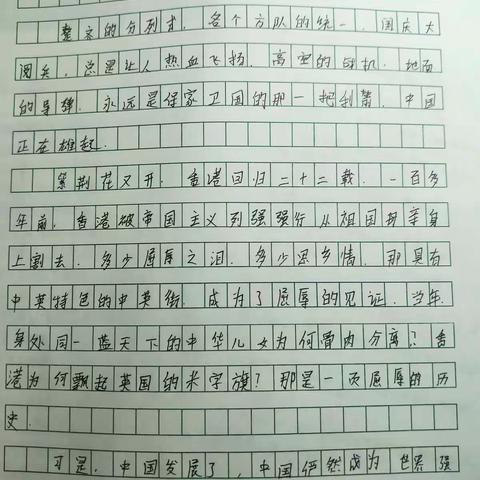 整齐的分列式，各个方队的统一，国庆大
阅兵，总是让人热血飞扬，高空的战机，地面
的导弹，永远是保家卫国的那一把利箭，中国
正在雄起．
紫荆花又开，香港回归二十二载．一百多
年前，香港被帝国主义列强强行从祖国母亲身
上割去，多少屈辱之泪，多少思乡情，那具有
中英特色的中英街，成为了屈辱的见证，当年，
身处同一蓝天下的中华儿女为何骨肉分离？香
港为何飘起英国的米字旗？那是一页屈辱的历
史．
可是，中国发展了，中国俨然成为世界强